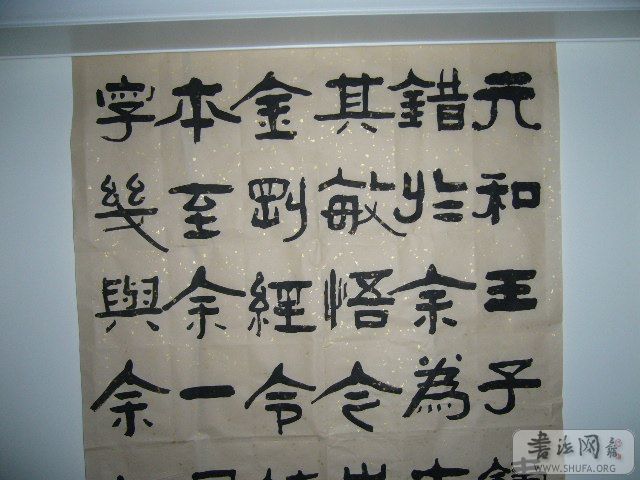 元和王子
錯於余為
其敏悟
金剛經令
本至余一
字幾與余
書法网
WWW.SHUFA.ORG